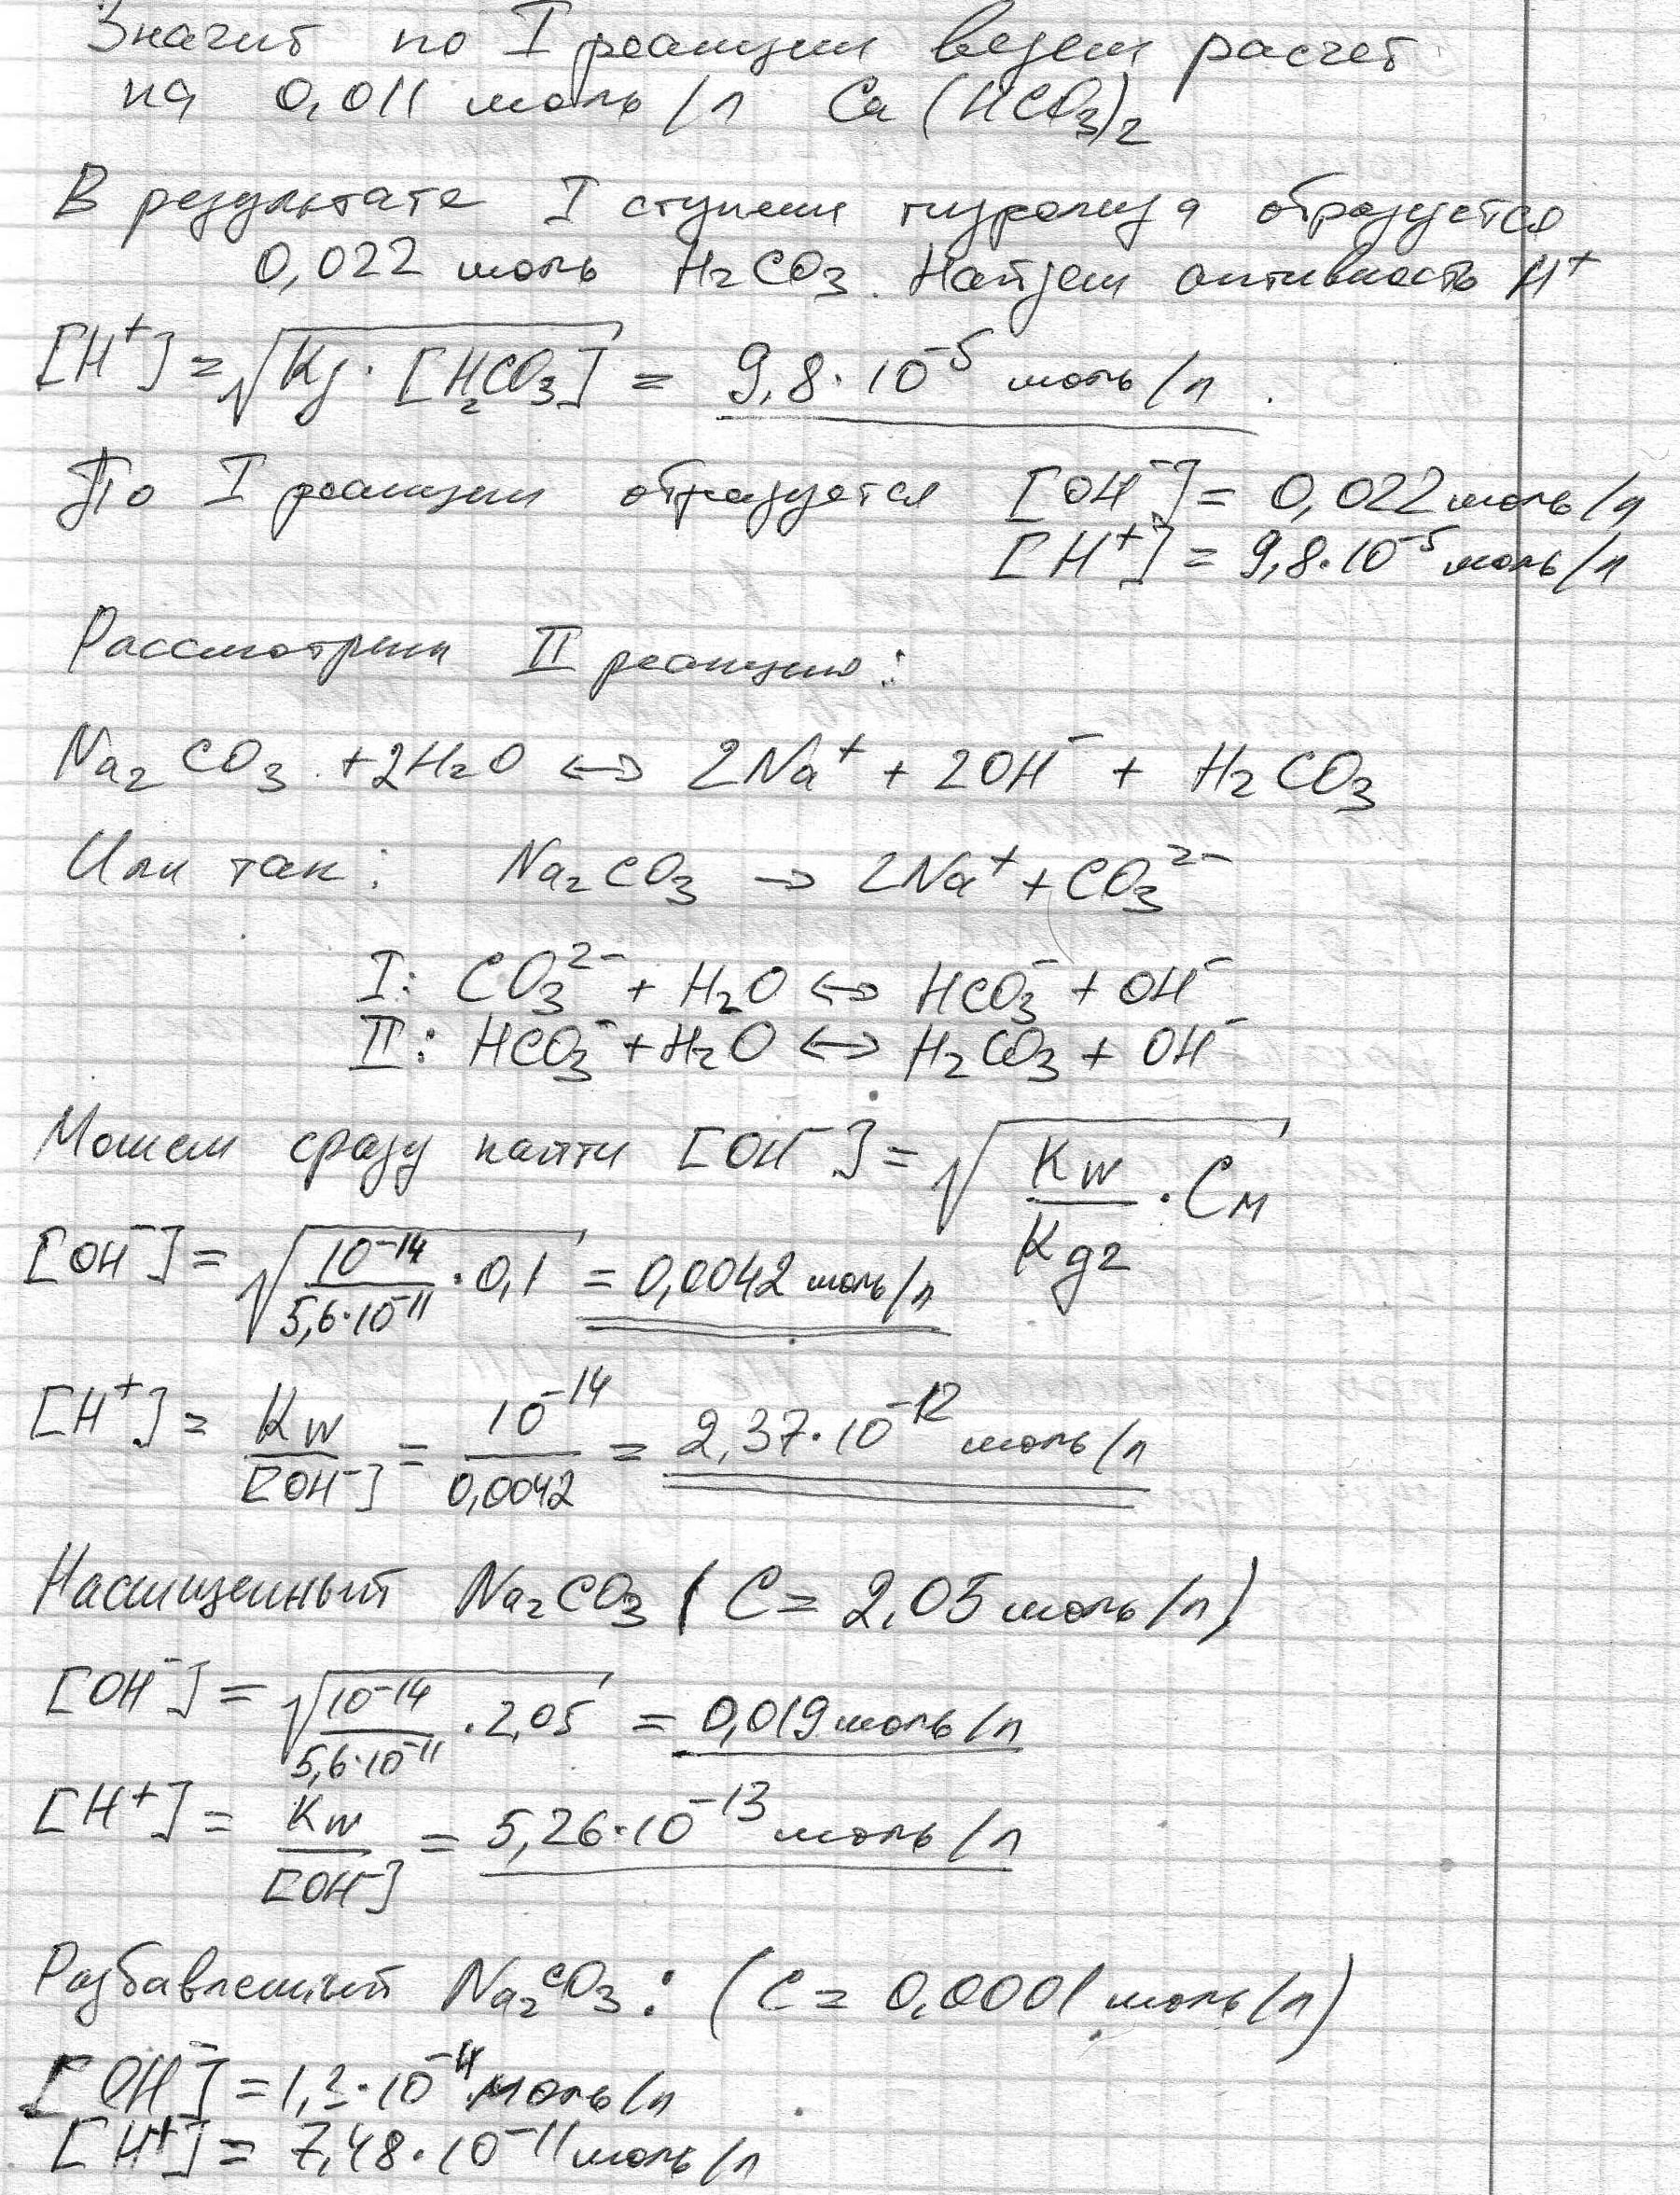 Значит по I реакции ведем расчет
на 0,011 моль/л Ca(HCO₃)₂
В результате I ступени гидролиза образуется
0,022 моль H₂CO₃. Найдем активность H⁺
[H⁺] = √(Kд · [H₂CO₃]) = 9,8·10⁻⁵ моль/л.
По I реакции образуется [OH⁻] = 0,022 моль/л
[H⁺] = 9,8·10⁻⁵ моль/л
Рассмотрим II реакцию:
Na₂CO₃ + 2H₂O ↔ 2Na⁺ + 2OH⁻ + H₂CO₃
Или так: Na₂CO₃ → 2Na⁺ + CO₃²⁻
I: CO₃²⁻ + H₂O ↔ HCO₃⁻ + OH⁻
II: HCO₃⁻ + H₂O ↔ H₂CO₃ + OH⁻
Можем сразу найти [OH⁻] = √(Kw/Kд2 · Cм)
[OH⁻] = √(10⁻¹⁴/5,6·10⁻¹¹ · 0,1) = 0,0042 моль/л
[H⁺] = Kw/[OH⁻] = 10⁻¹⁴/0,0042 = 2,37·10⁻¹² моль/л
Насыщенный Na₂CO₃ (C = 2,05 моль/л)
[OH⁻] = √(10⁻¹⁴/5,6·10⁻¹¹ · 2,05) = 0,019 моль/л
[H⁺] = Kw/[OH⁻] = 5,26·10⁻¹³ моль/л
Разбавленный Na₂CO₃: (C = 0,0001 моль/л)
[OH⁻] = 1,3·10⁻⁴ моль/л
[H⁺] = 7,48·10⁻¹¹ моль/л